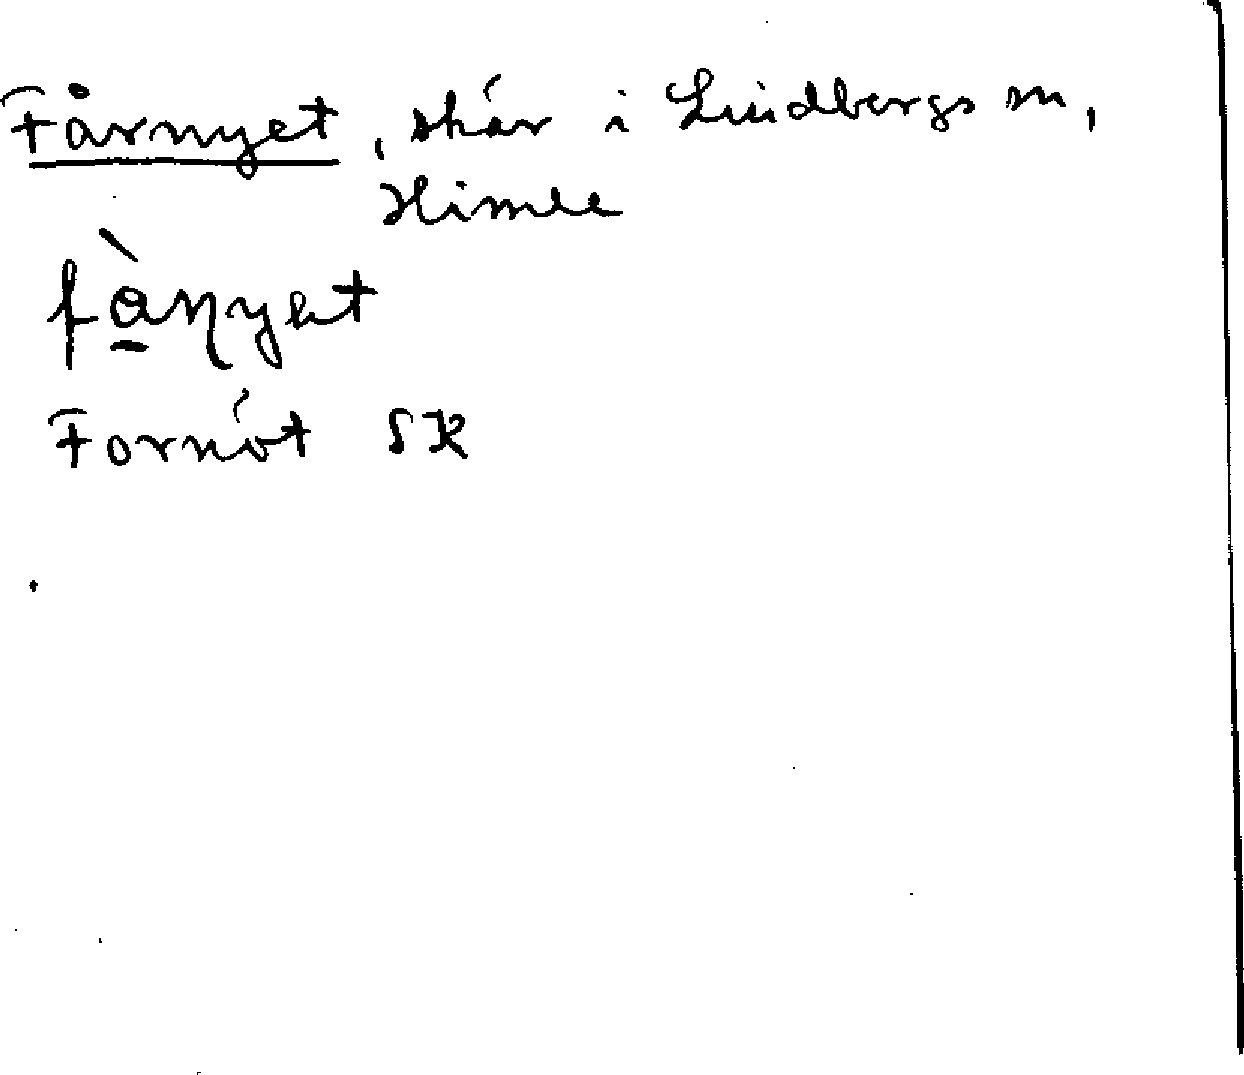 Fårnyet, skär i Lindbergs sn,
Himle
få̀ɳyət
Fornöt SK